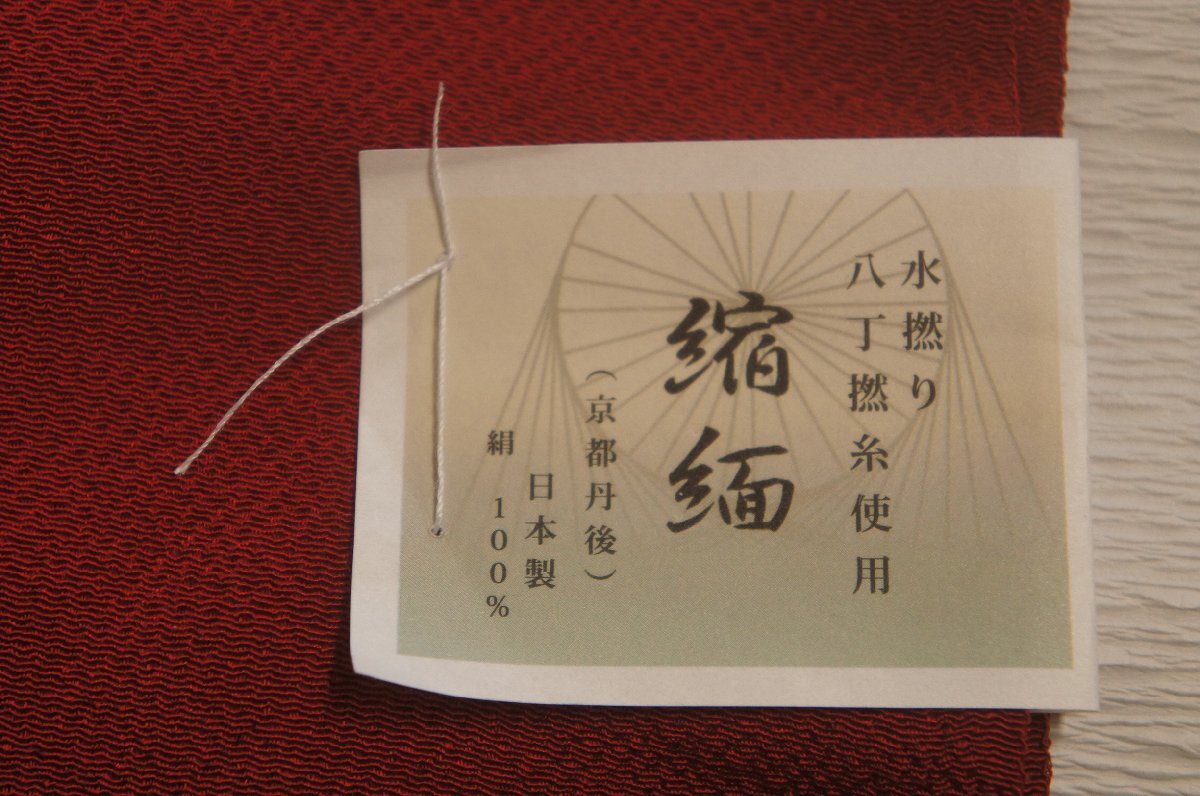 水撚り
八丁撚糸使用
縮緬
（京都丹後）
日本製
絹 100%